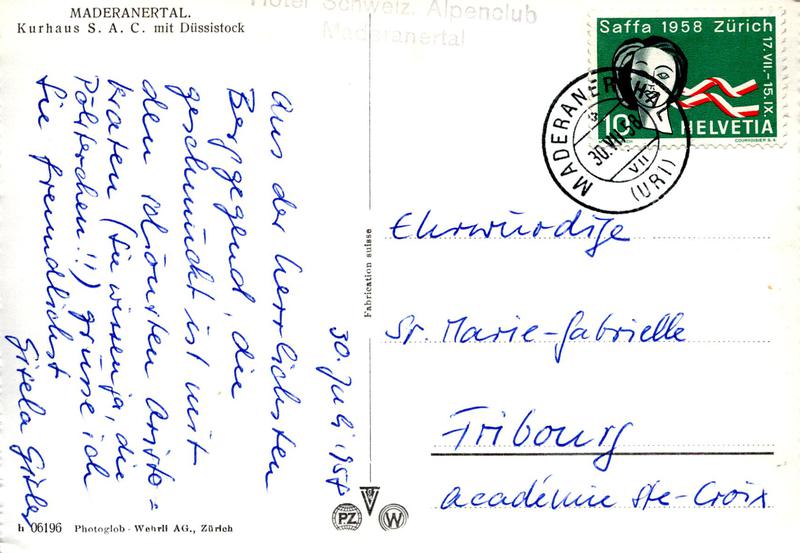 MADERANERTAL.
Kurhaus S. A. C. mit Düssistock
Hotel Schweiz. Alpenclub
Maderanertal
Saffa 1958 Zürich
17.VII.-15.IX.
10 HELVETIA
COURVOISIER S.A.
MADERANERTHAL
30.VII.58
VII
(URI)
30. Juli 1958
Aus der herrlichsten
Berggegend, die
geschmückt ist mit
den schönsten Aristo=
kraten (Sie wissen ja, die
Pölsterchen!!) grüsse ich
Sie freundlichst
Gisela Gisler
Fabrication suisse
Ehrwürdige
Sr. Marie-Gabrielle
Fribourg
académie Ste-Croix
h 06196 Photoglob - Wehrli AG., Zürich
PZ W